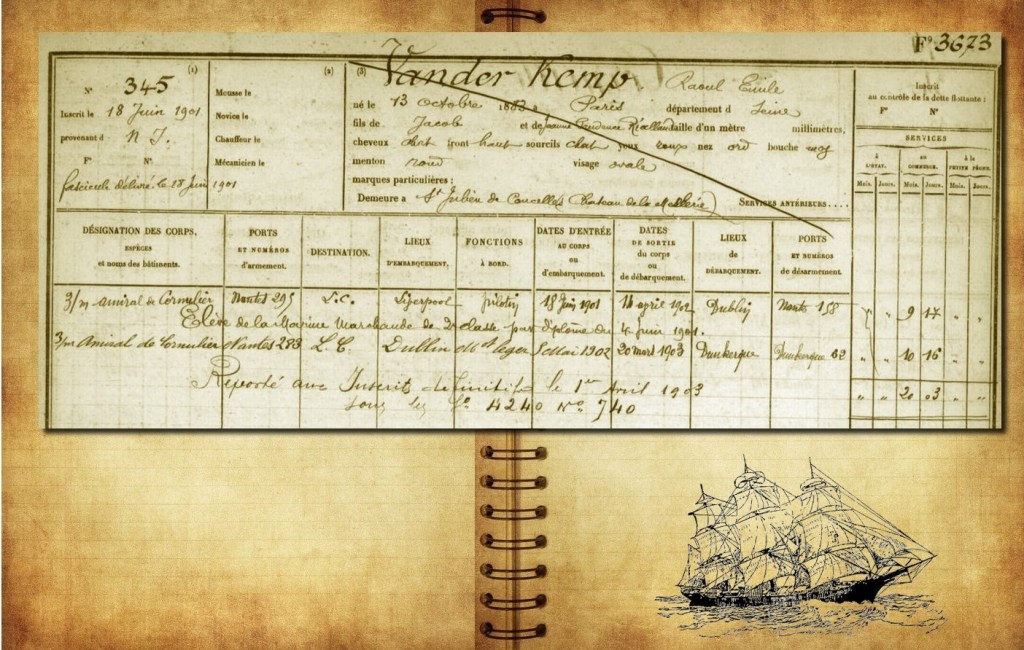 Fº 3673
(1) (2) (3) Vander Kemp Raoul Emile
Nº 345
Inscrit le 18 Juin 1901
provenant d N I.
Fº Nº
fascicule délivré le 18 Juin 1901
Mousse le
Novice le
Chauffeur le
Mécanicien le
né le 13 octobre 1883 à Paris département d Seine
fils de Jacob et de Jeanne Prudence taille d'un mètre millimètres,
cheveux chat front haut sourcils chat yeux nez ord bouche moy
menton rond visage ovale
marques particulières :
Demeure à St Julien de Concelles Chateau de la
SERVICES ANTÉRIEURS....
Inscrit
au contrôle de la dette flottante :
Fº Nº
SERVICES
à L'ÉTAT. au COMMERCE. à la PETITE PÊCHE.
Mois. Jours. Mois. Jours. Mois. Jours.
DÉSIGNATION DES CORPS,
ESPÈCES
et noms des bâtiments.
PORTS
ET NUMÉROS
d'armement.
DESTINATION.
LIEUX
D'EMBARQUEMENT.
FONCTIONS
À BORD.
DATES D'ENTRÉE
AU CORPS
ou
d'embarquement.
DATES
DE SORTIE
du corps
ou
de débarquement.
LIEUX
de
DÉBARQUEMENT.
PORTS
ET NUMÉROS
de désarmement.
3/m amiral de Cornulier Nantes 295 L.C. Liverpool pilotin 18 Juin 1901 14 april 1902 Dublin Nantes 158 " " 9 27 " "
Elève de la Marine Marchande de 2e classe par diplôme du 4 Juin 1901.
3/m Amiral de Cornulier Nantes 283 L.C. Dublin Mt leger 5 Mai 1902 20 mars 1903 Dunkerque Dunkerque 62 " " 10 16 " "
Reporté aux Inscrits définitifs le 1er Avril 1903 " " 20 03 " "
sous les Fº 4240 Nº 740